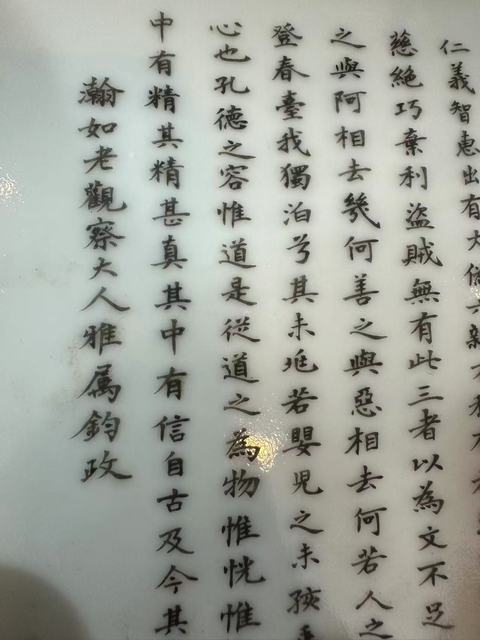 仁義智惠出有大偽六親不和
慈絕巧棄利盜賊無有此三者以為文不足
之與阿相去幾何善之與惡相去何若人之
登春臺我獨泊兮其未兆若嬰兒之未孩
心也孔德之容惟道是從道之為物惟恍惟
中有精其精甚真其中有信自古及今其
瀚如老觀察大人雅属鈞政